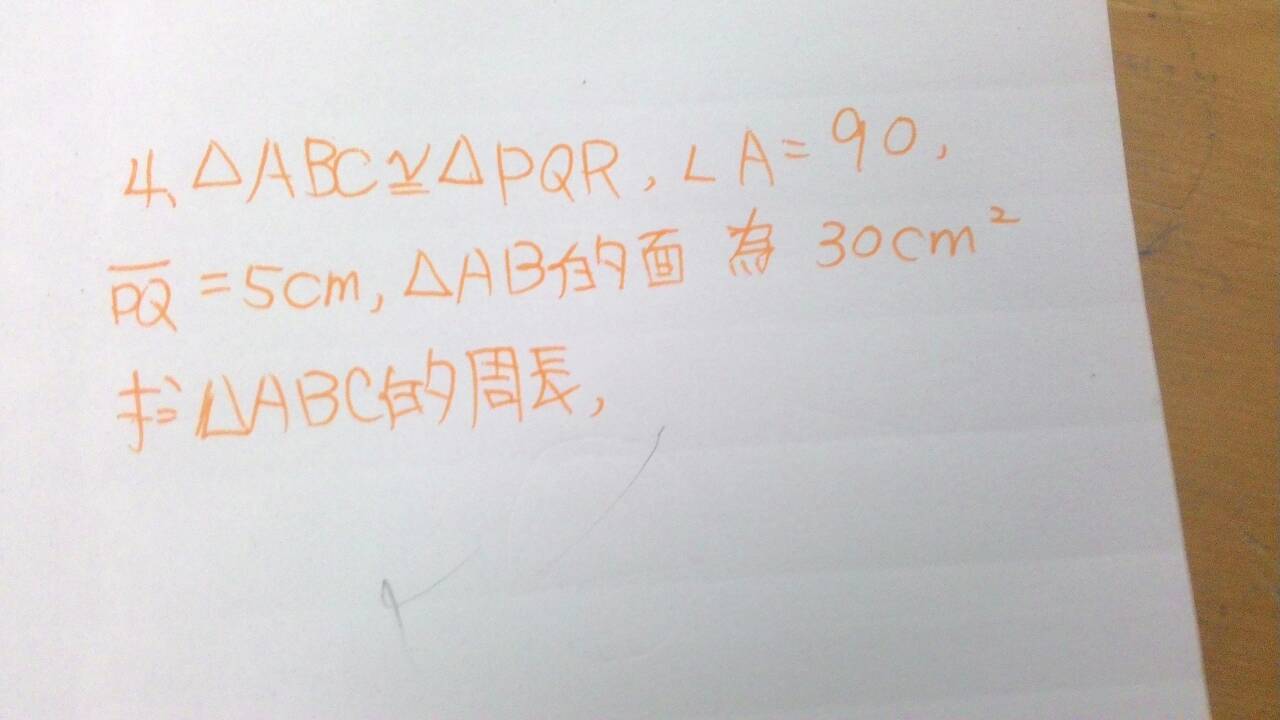 4、△ABC≅△PQR,∠A=90,
P̅Q̅=5cm,△AB的面 為 30cm²
求△ABC的周長,